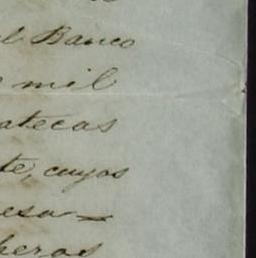 el Banco
mil
atecas
te, cuyos
esa
heros